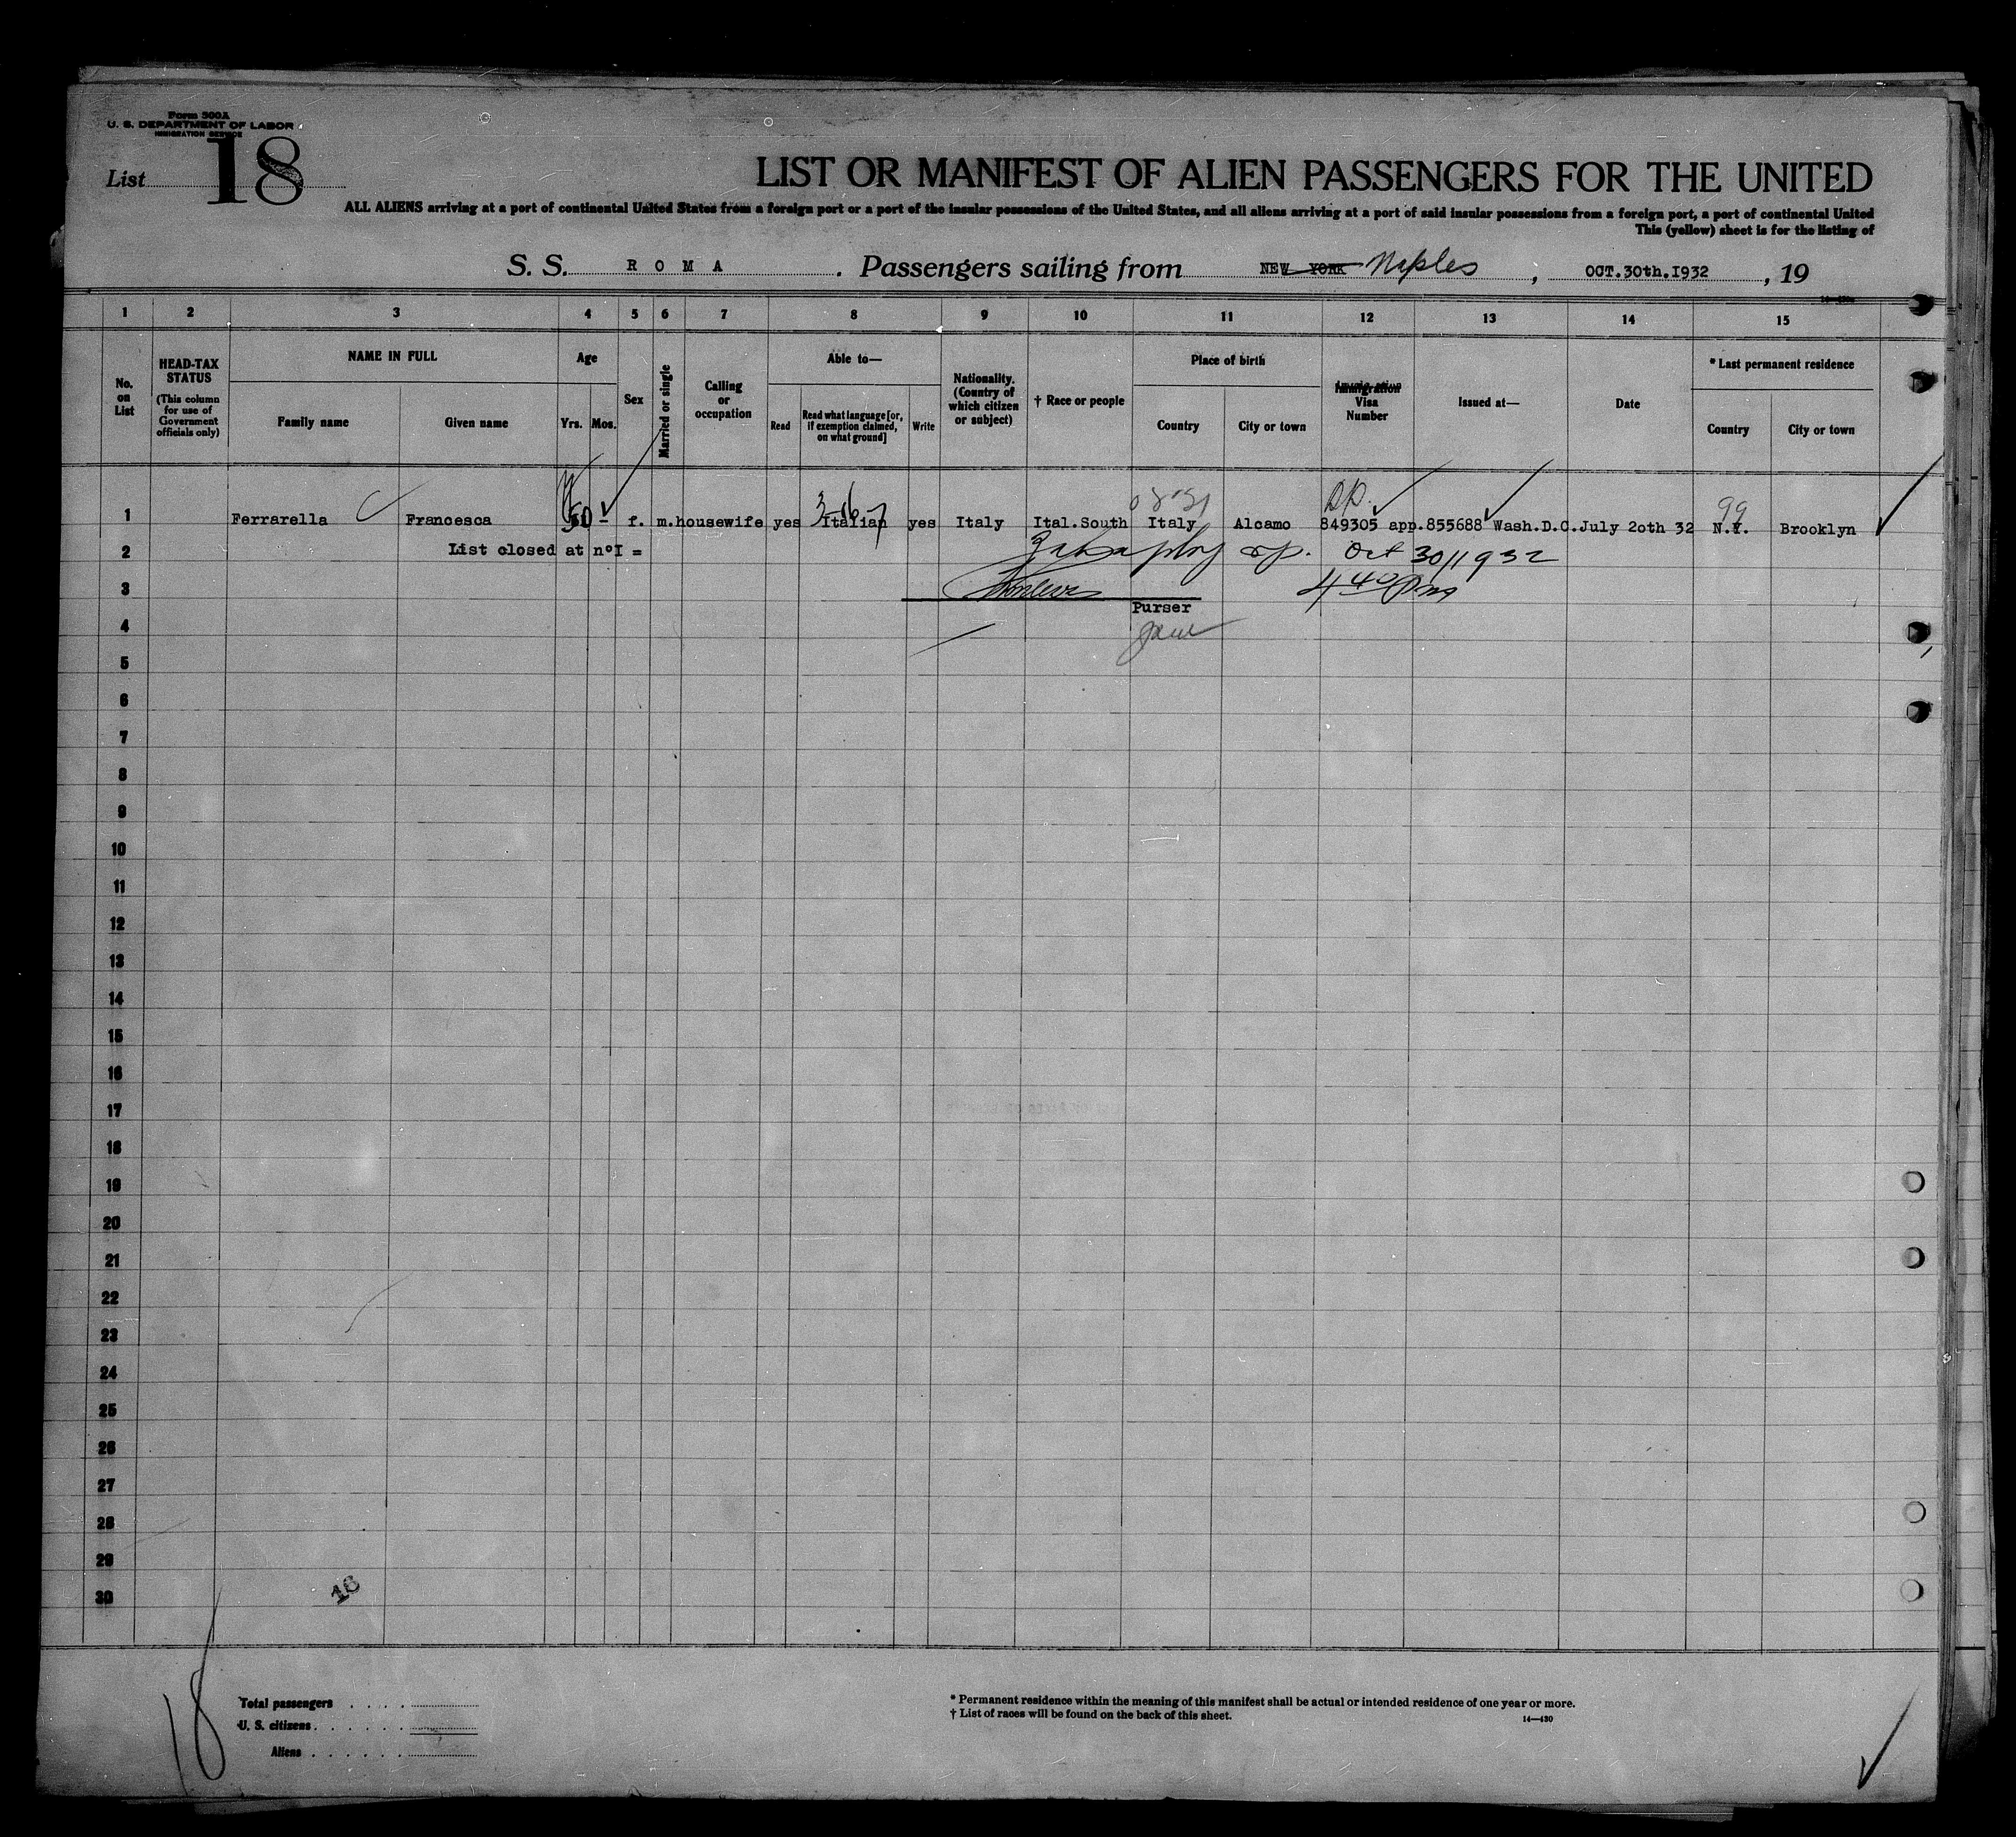 Form 500A
U. S. DEPARTMENT OF LABOR
IMMIGRATION SERVICE
List 18
LIST OR MANIFEST OF ALIEN PASSENGERS FOR THE UNITED
ALL ALIENS arriving at a port of continental United States from a foreign port or a port of the insular possessions of the United States, and all aliens arriving at a port of said insular possessions from a foreign port, a port of continental United
This (yellow) sheet is for the listing of
S. S. ROMA. Passengers sailing from NEW YORK Naples, OCT.30th.1932, 19
1 2 3 4 5 6 7 8 9 10 11 12 13 14 15
No. on List
HEAD-TAX STATUS
(This column for use of Government officials only)
NAME IN FULL
Family name
Given name
Age
Yrs. Mos.
Sex
Married or single
Calling or occupation
Able to—
Read
Read what language [or, if exemption claimed, on what ground]
Write
Nationality. (Country of which citizen or subject)
† Race or people
Place of birth
Country
City or town
Immigration Visa Number
Issued at—
Date
* Last permanent residence
Country
City or town
99
1 Ferrarella Francesca 50 - f. m. housewife yes Italian yes Italy Ital.South Italy Alcamo 849305 app.855688 Wash.D.C. July 2oth 32 N.Y. Brooklyn
2 List closed at n°I = Oct 30/1932
3 4 40 Pm
Purser
4
5
6
7
8
9
10
11
12
13
14
15
16
17
18
19
20
21
22
23
24
25
26
27
28
29
30
16
18
Total passengers
U. S. citizens
Aliens
* Permanent residence within the meaning of this manifest shall be actual or intended residence of one year or more.
† List of races will be found on the back of this sheet.
14—430